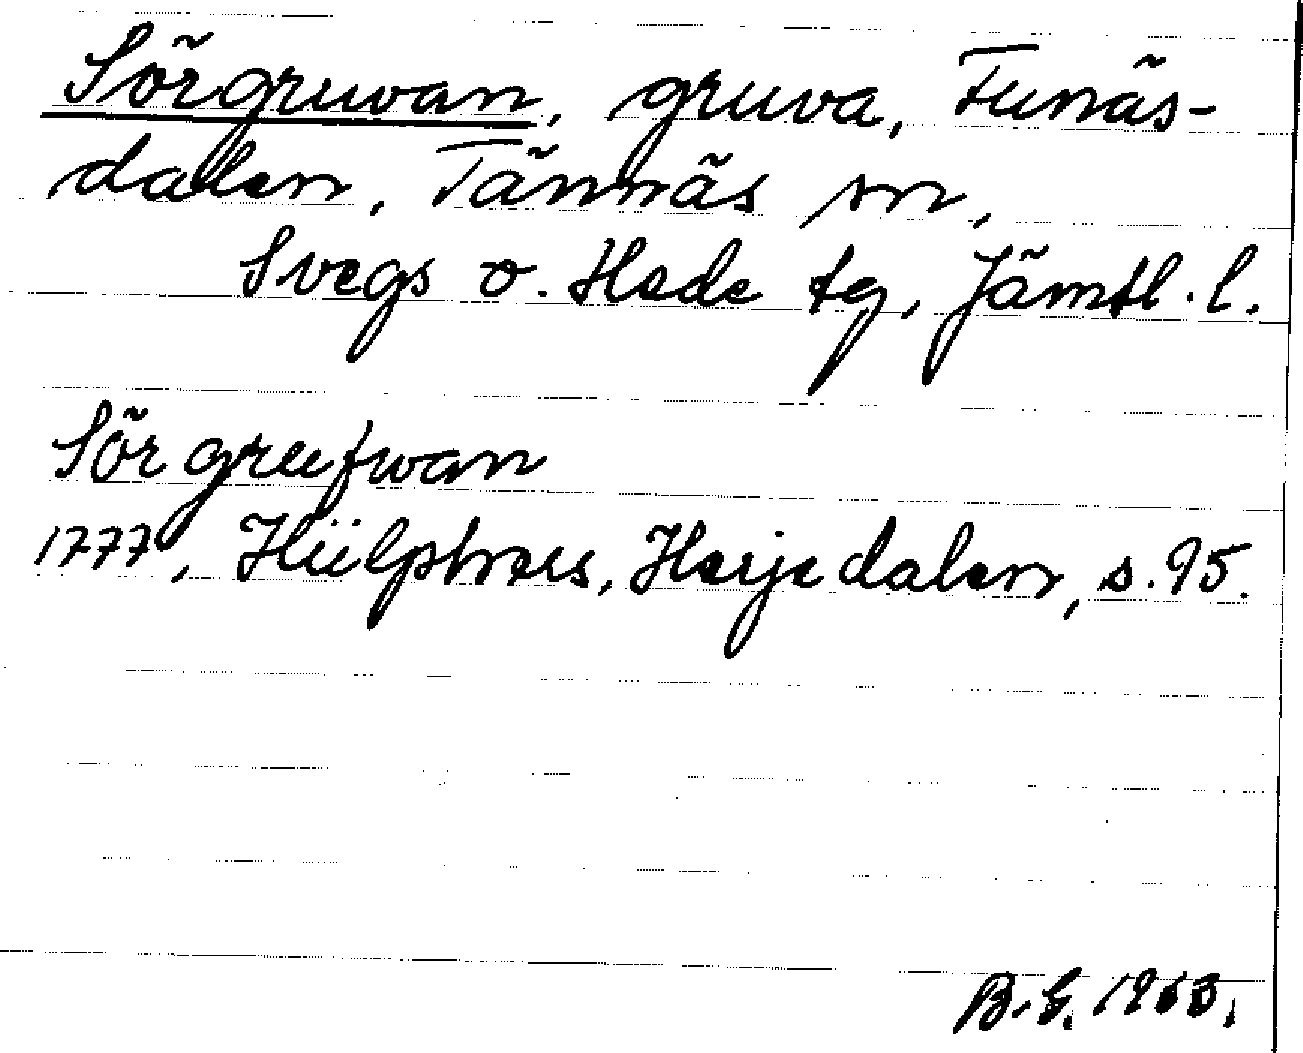 Sörgruvan, gruva, Funäs-
dalen, Tännäs sn,
Svegs o. Hede tg, Jämtl. l.
Sör grufwan
1777, Hülphers, Herjedalen, s. 95.
B.E. 1963.